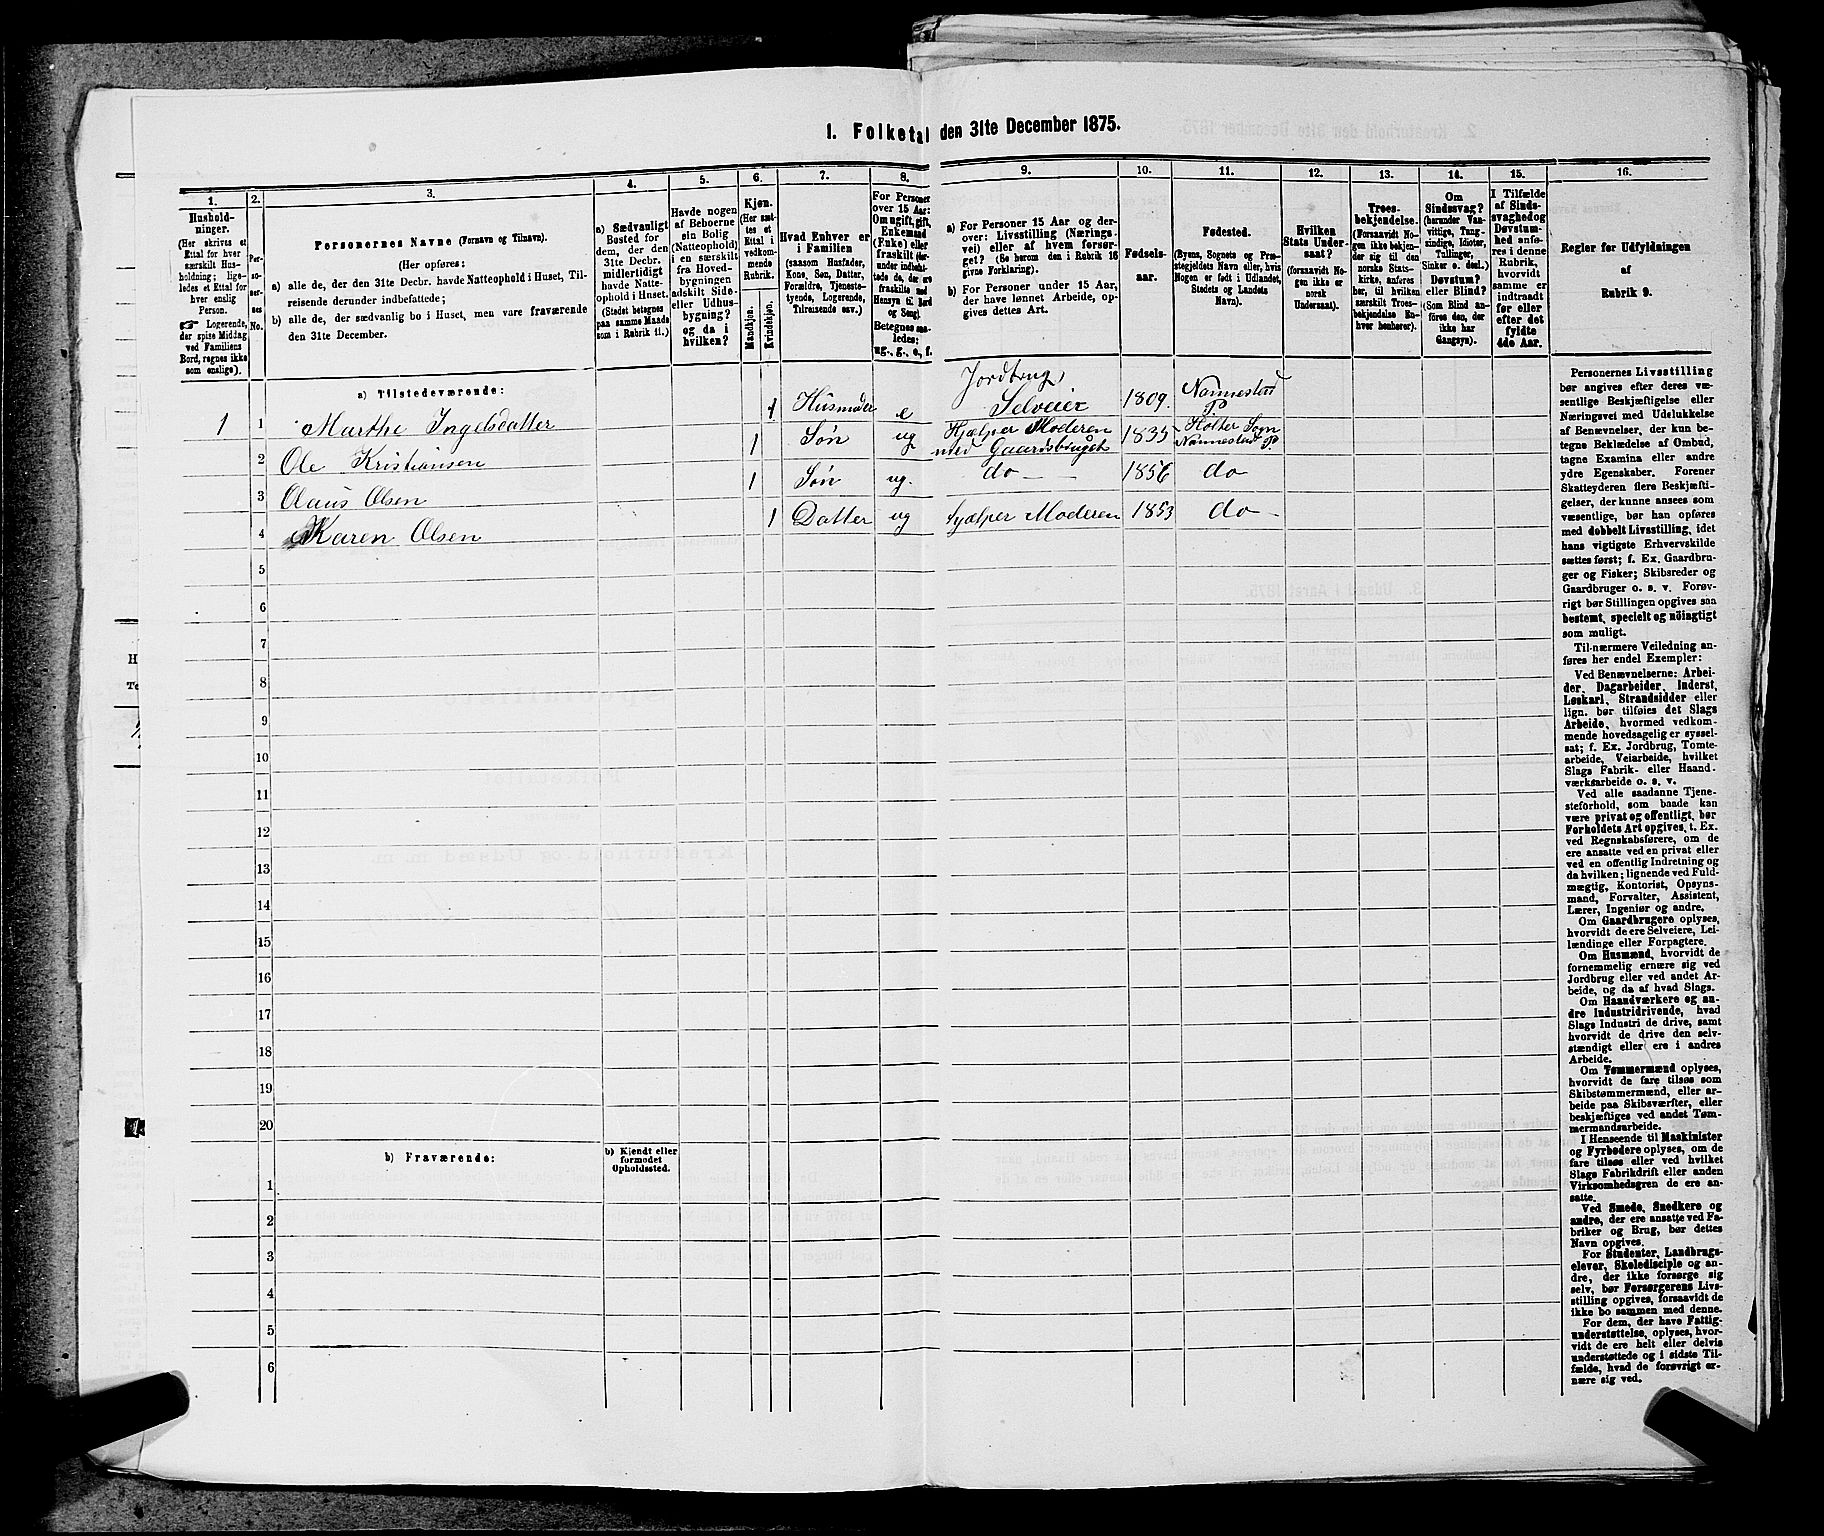 1. Folketal den 31te December 1875.
1. 2. 3. 4. 5. 6. 7. 8. 9. 10. 11. 12. 13. 14. 15. 16.
Hushold-
ninger.
(Her skrives et
Ettal for hver
særskilt Hus-
holdning; lige-
ledes et Ettal for
hver enslig
Person.
☞ Logerende,
der spise Middag
ved Familiens
Bord, regnes ikke
som enslige).
Per-
so-
ner-
nes
No.
Personernes Navne (Fornavn og Tilnavn).
(Her opføres:
a) alle de, der den 31te Decbr. havde Natteophold i Huset, Til-
reisende derunder indbefattede;
b) alle de, der sædvanlig bo i Huset, men vare fraværende
den 31te December.
a) Sædvanligt
Bosted for
dem, der den
31te Decbr.
midlertidigt
havde Natte-
ophold i Huset.
(Stedet betegnes
paa samme Maade
som i Rubrik 11.)
Havde nogen
af Beboerne
sin Bolig
(Natteophold)
i en særskilt
fra Hoved-
bygningen
adskilt Side-
eller Udhus-
bygning?
og da i
hvilken?
Kjøn.
(Her sæt-
tes et
Ettal i
vedkom-
mende
Rubrik.
Mandkjøn.
Kvindekjøn.
Hvad Enhver er
i Familien
(saasom Husfader,
Kone, Søn, Datter,
Forældre, Tjeneste-
tyende, Logerende,
Tilreisende osv.)
For Personer
over 15 Aar:
Om ugift, gift,
Enkemand
(Enke) eller
fraskilt (der-
under indbefat-
tede de, der ere
fraskilte med
Hensyn til Bord
og Seng).
Betegnes saa-
ledes:
ug., g., e, f.
a) For Personer 15 Aar og der-
over: Livsstilling (Nærings-
vei) eller af hvem forsør-
get? (Se herom den i Rubrik 16
givne Forklaring).
b) For Personer under 15 Aar,
der have lønnet Arbeide, op-
gives dettes Art.
Fødsels-
aar.
Fødested.
(Byens, Sognets og Præ-
stegjeldets Navn eller, hvis
Nogen er født i Udlandet,
Stedets og Landets
Navn).
Hvilken
Stats Under-
saat?
(forsaavidt No-
gen ikke er
norsk
Undersaat).
Troes-
bekjendelse.
(Forsaavidt No-
gen ikke bekjen-
der sig til den
norske Stats-
kirke, anføres
her, til hvilken
særskilt Troes-
bekjendelse En-
hver henhører).
Om
Sindssvag?
(herunder Van-
vittige, Tung-
sindige, Idioter,
Tullinger,
Sinker o. desl.)
Døvstum?
eller Blind?
(Som Blind an-
føres den, der
ikke har
Gangsyn).
I Tilfælde
af Sinds-
svaghed og
Døvstum-
hed anfø-
res i denne
Rubrik,
hvorvidt
samme er
indtraadt
før eller
efter det
fyldte
4de Aar.
Regler for Udfyldningen
af
Rubrik 9.
a) Tilstedeværende:
1 1 Marthe Ingelsdatter 1 Husmoder e Jordbrug, Selveier 1809. Nannestad P
2 Ole Kristiansen 1 Søn ug Hjælper Moderen med Gaardsbruget 1835 Holter Sogn Nannestad P.
3 Olaus Olsen 1 Søn ug. do 1856 do
4 Karen Olsen 1 Datter ug Hjælper Moderen 1853 do
5
6
7
8
9
10
11
12
13
14
15
16
17
18
19
20
b) Fraværende:
b) Kjendt eller
formodet
Opholdssted.
1
2
3
4
5
6
Personernes Livsstilling
bør angives efter deres væ-
sentlige Beskjæftigelse eller
Næringsvei med Udelukkelse
af Benævnelser, der kun be-
tegne Beklædelse af Ombud,
tagne Examina eller andre
ydre Egenskaber. Forener
Skatteyderen flere Beskjæfti-
gelser, der kunne ansees som
væsentlige, bør han opføres
med dobbelt Livsstilling, idet
hans vigtigste Erhvervskilde
sættes først; f. Ex. Gaardbru-
ger og Fisker; Skibsreder og
Gaardbruger o. s. v. Forøv-
rigt bør Stillingen opgives saa
bestemt, specielt og nöiagtigt
som muligt.
Til nærmere Veiledning an-
føres her endel Exempler:
Ved Benævnelserne: Arbei-
der, Dagarbeider, Inderst,
Løskarl, Strandsidder eller
lign. bør tilføies det Slags
Arbeide, hvormed vedkom-
mende hovedsagelig er syssel-
sat; f. Ex. Jordbrug, Tomte-
arbeide, Veiarbeide, hvilket
Slags Fabrik- eller Haand-
værksarbeide o. s. v.
Ved alle saadanne Tjene-
steforhold, som baade kan
være privat og offentligt, bør
Forholdets Art opgives, t. Ex.
ved Regnskabsførere, om de
ere ansatte ved en privat eller
ved en offentlig Indretning og
da hvilken; lignende ved Fuld-
mægtig, Kontorist, Opsyns-
mand, Forvalter, Assistent,
Lærer, Ingeniør og andre.
Om Gaardbrugere oplyses,
hvorvidt de ere Selveiere, Lei-
lændinge eller Forpagtere.
Om Husmænd, hvorvidt de
fornemmelig ernære sig ved
Jordbrug eller ved andet Ar-
beide, og da af hvad Slags.
Om Haandværkere og an-
dre Industridrivende, hvad
Slags Industri de drive, samt
hvorvidt de drive den selv-
stændigt eller ere i andres
Arbeide.
Om Tømmermænd oplyses,
hvorvidt de fare tilsøs som
Skibstømmermænd, eller ar-
beide paa Skibsværfter, eller
beskjæftiges ved andet Tøm-
mermandsarbeide.
I Henseende til Maskinister
og Fyrbødere oplyses, om de
fare tilsøs eller ved hvilket
Slags Fabrikdrift eller anden
Virksomhedsgren de ere an-
satte.
Ved Smede, Snedkere og
andre, der ere ansatte ved Fa-
briker og Brug, bør dettes
Navn opgives.
For Studenter, Landbrugs-
elever, Skoledisciple og an-
dre, der ikke forsørge sig
selv, bør Forsørgerens Livs-
stilling opgives, forsaavidt de
ikke bo sammen med denne.
For dem, der have Fattig-
understøttelse, oplyses, hvor-
vidt de ere helt eller delvis
understøttede og i sidste Til-
fælde, hvad de forøvrigt er-
nære sig ved.